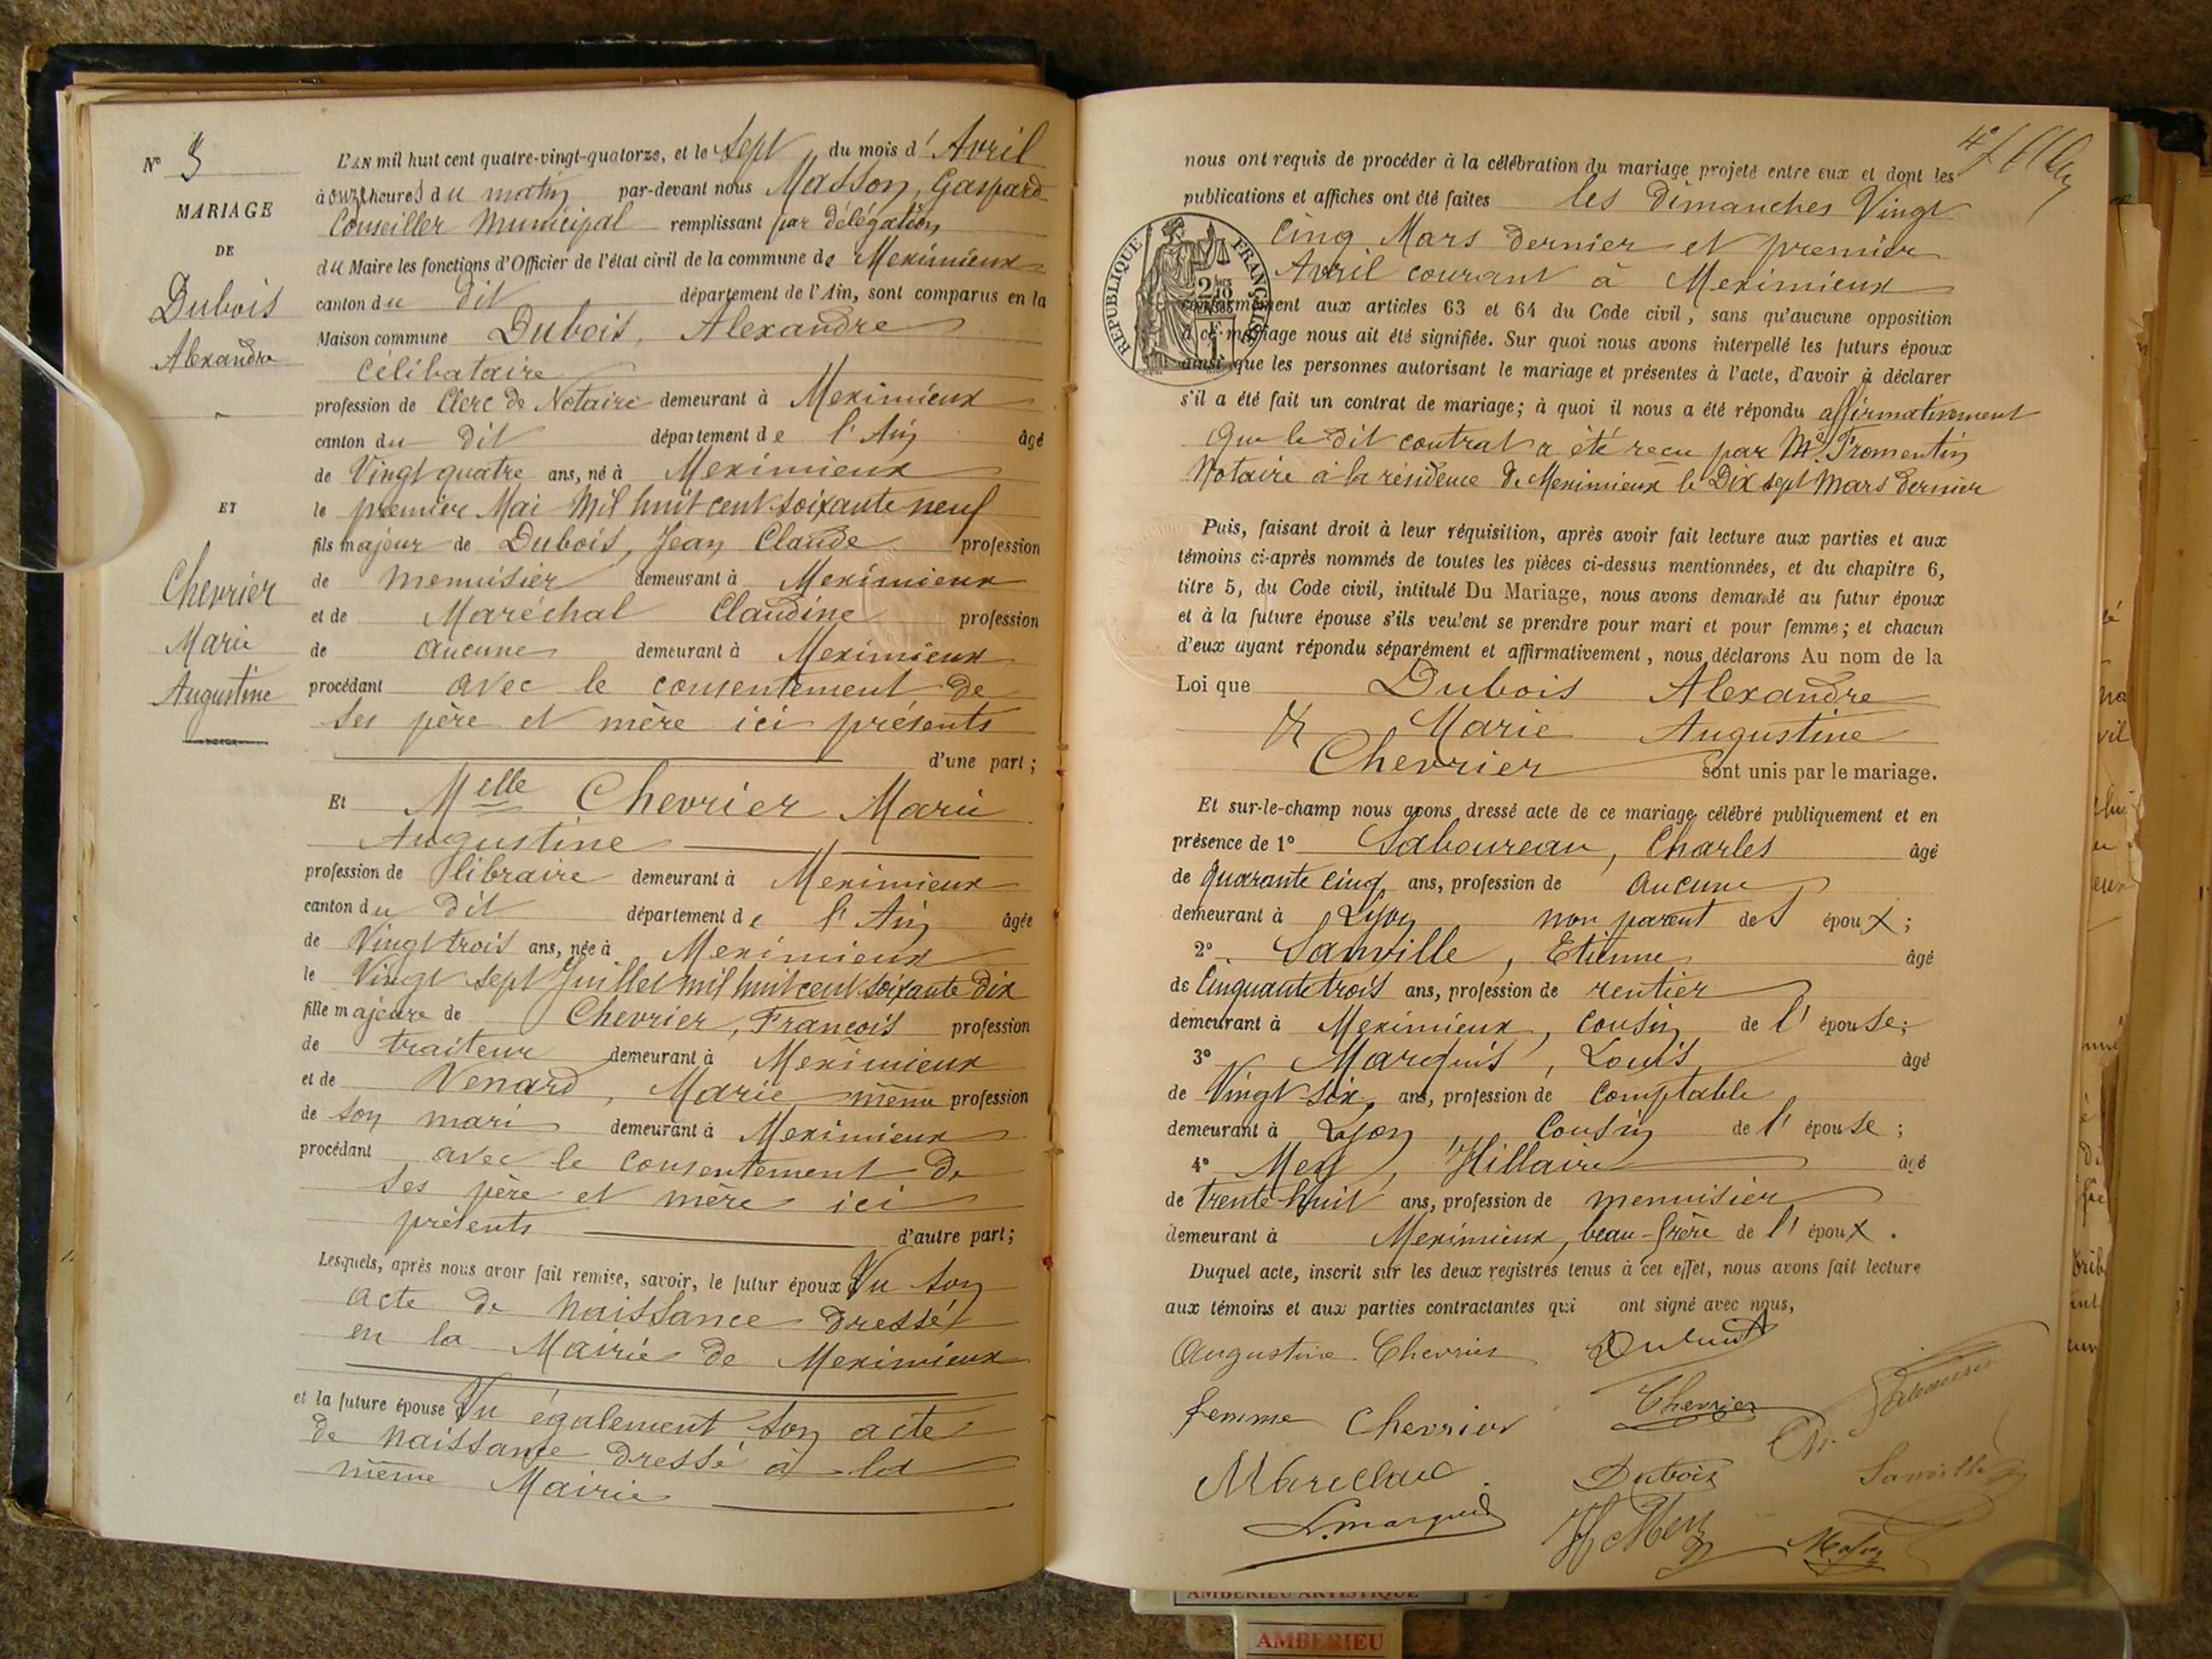 N° 3
MARIAGE
DE
Dubois
Alexandre
ET
Chevrier
Marie
Augustine
L'AN mil huit cent quatre-vingt-quatorze, et le Sept du mois d' Avril
à onze heures du matin par-devant nous Masson, Gaspard
Conseiller Municipal remplissant par délégation
du Maire les fonctions d'Officier de l'état civil de la commune de Meximieux
canton du dit département de l'Ain, sont comparus en la
Maison commune Dubois, Alexandre
Célibataire
profession de Clerc de Notaire demeurant à Meximieux
canton du dit département de l'Ain âgé
de Vingt quatre ans, né à Meximieux
le premier Mai Mil huit cent soixante neuf
fils majeur de Dubois, Jean Claude profession
de menuisier demeurant à Meximieux
et de Maréchal Claudine profession
de aucune demeurant à Meximieux
procédant avec le consentement de
ses père et mère ici présents
d'une part ;
Et Melle Chevrier Marie
Augustine
profession de libraire demeurant à Meximieux
canton du dit département de l'Ain âgée
de Vingt trois ans, née à Meximieux
le Vingt sept Juillet mil huit cent soixante dix
fille majeure de Chevrier, François profession
de traiteur demeurant à Meximieux
et de Venard, Marie même profession
de son mari demeurant à Meximieux
procédant avec le consentement de
ses père et mère ici
présents d'autre part ;
Lesquels, après nous avoir fait remise, savoir, le futur époux Vu son
acte de naissance dressé
en la Mairie de Meximieux
et la future épouse Vu également son acte
de naissance dressé à la
même Mairie
nous ont requis de procéder à la célébration du mariage projeté entre eux et dont les
publications et affiches ont été faites les dimanches Vingt
cinq Mars dernier et premier
Avril courant à Meximieux
RÉPUBLIQUE FRANÇAISE
conformément aux articles 63 et 64 du Code civil, sans qu'aucune opposition
à ce mariage nous ait été signifiée. Sur quoi nous avons interpellé les futurs époux
ainsi que les personnes autorisant le mariage et présentes à l'acte, d'avoir à déclarer
s'il a été fait un contrat de mariage ; à quoi il nous a été répondu affirmativement
que le dit contrat a été reçu par Me Fromentin
Notaire à la résidence de Meximieux le Dix sept Mars dernier
Puis, faisant droit à leur réquisition, après avoir fait lecture aux parties et aux
témoins ci-après nommés de toutes les pièces ci-dessus mentionnées, et du chapitre 6,
titre 5, du Code civil, intitulé Du Mariage, nous avons demandé au futur époux
et à la future épouse s'ils veulent se prendre pour mari et pour femme ; et chacun
d'eux ayant répondu séparément et affirmativement, nous déclarons Au nom de la
Loi que Dubois Alexandre
& Marie Augustine
Chevrier sont unis par le mariage.
Et sur-le-champ nous avons dressé acte de ce mariage célébré publiquement et en
présence de 1° Saboureau, Charles âgé
de quarante cinq ans, profession de aucune
demeurant à Lyon non parent des époux ;
2° Sanville, Etienne âgé
de Cinquante trois ans, profession de rentier
demeurant à Meximieux, cousin de l' épouse ;
3° Marquis, Louis âgé
de Vingt six ans, profession de Comptable
demeurant à Lyon, Cousin de l' épouse ;
4° Mery, Hillaire âgé
de trente huit ans, profession de menuisier
demeurant à Meximieux, beau-frère de l' époux .
Duquel acte, inscrit sur les deux registres tenus à cet effet, nous avons fait lecture
aux témoins et aux parties contractantes qui ont signé avec nous,
Augustine Chevrier
femme Chevrier Chevrier
Dubois Sanville
L. marquis
AMBERIEU ARTISTIQUE
AMBERIEU